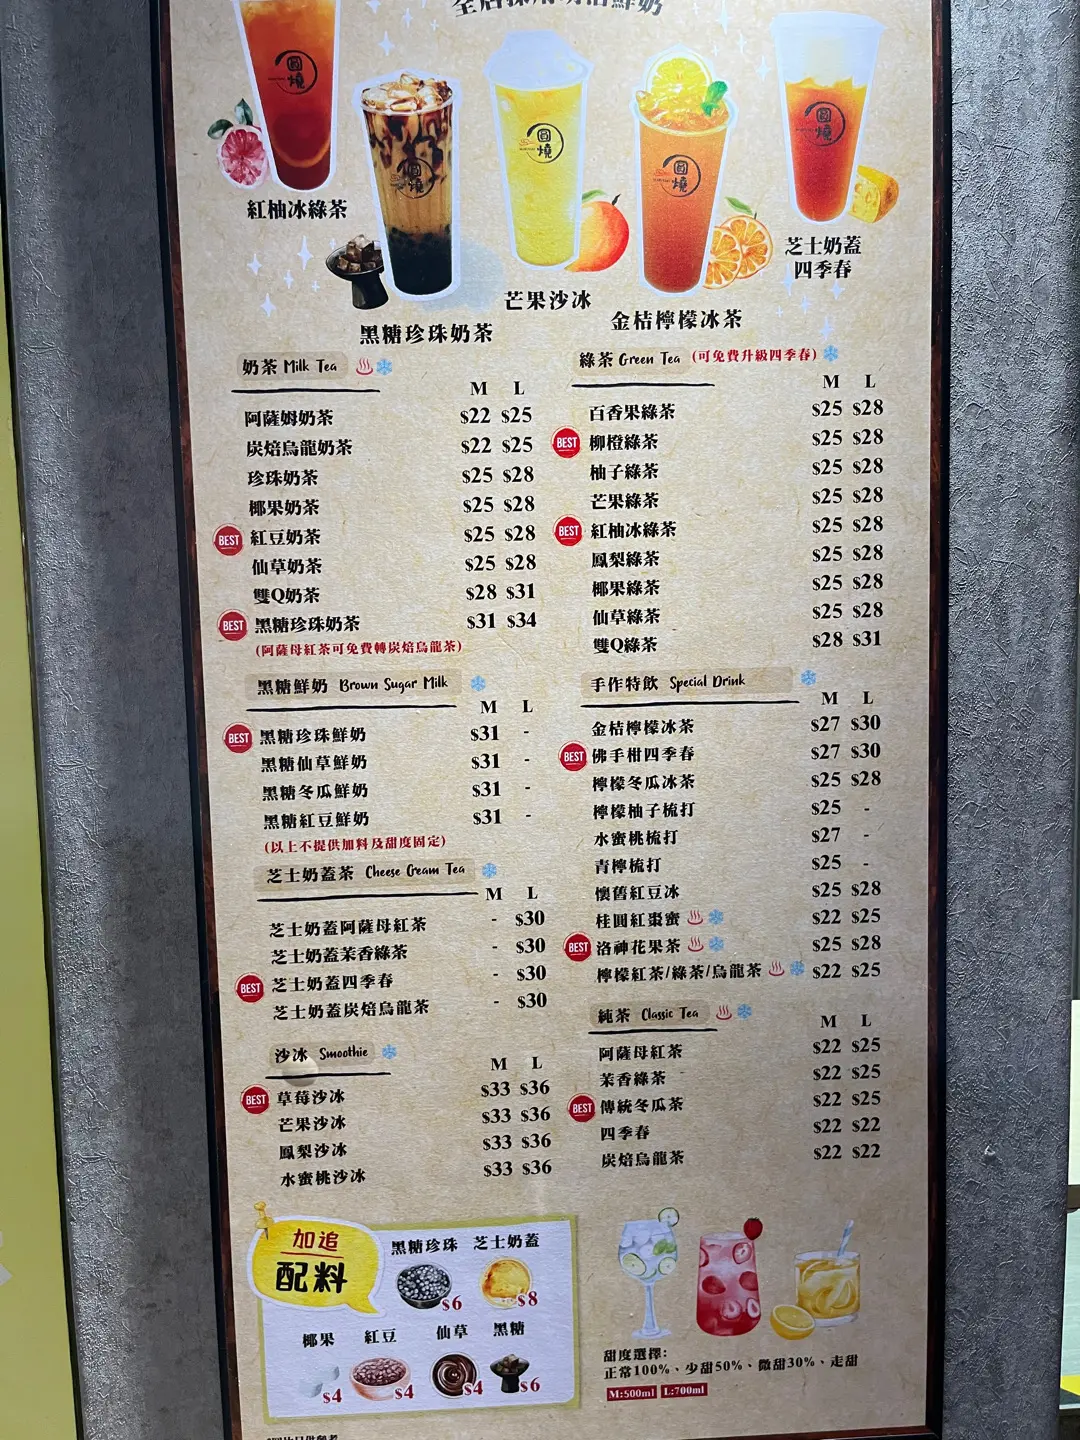 圓燒
圓燒
圓燒
圓燒
圓燒
紅柚冰綠茶
黑糖珍珠奶茶
芒果沙冰
金桔檸檬冰茶
芝士奶蓋
四季春
奶茶 Milk Tea
M L
阿薩姆奶茶 $22 $25
炭焙烏龍奶茶 $22 $25
珍珠奶茶 $25 $28
椰果奶茶 $25 $28
BEST 紅豆奶茶 $25 $28
仙草奶茶 $25 $28
雙Q奶茶 $28 $31
BEST 黑糖珍珠奶茶 $31 $34
(阿薩母紅茶可免費轉炭焙烏龍茶)
黑糖鮮奶 Brown Sugar Milk
M L
BEST 黑糖珍珠鮮奶 $31 -
黑糖仙草鮮奶 $31 -
黑糖冬瓜鮮奶 $31 -
黑糖紅豆鮮奶 $31 -
(以上不提供加料及甜度固定)
芝士奶蓋茶 Cheese Cream Tea
M L
芝士奶蓋阿薩母紅茶 - $30
芝士奶蓋茉香綠茶 - $30
BEST 芝士奶蓋四季春 - $30
芝士奶蓋炭焙烏龍茶 - $30
沙冰 Smoothie
M L
BEST 草莓沙冰 $33 $36
芒果沙冰 $33 $36
鳳梨沙冰 $33 $36
水蜜桃沙冰 $33 $36
綠茶 Green Tea (可免費升級四季春)
M L
百香果綠茶 $25 $28
BEST 柳橙綠茶 $25 $28
柚子綠茶 $25 $28
芒果綠茶 $25 $28
BEST 紅柚冰綠茶 $25 $28
鳳梨綠茶 $25 $28
椰果綠茶 $25 $28
仙草綠茶 $25 $28
雙Q綠茶 $28 $31
手作特飲 Special Drink
M L
金桔檸檬冰茶 $27 $30
BEST 佛手柑四季春 $27 $30
檸檬冬瓜冰茶 $25 $28
檸檬柚子梳打 $25 -
水蜜桃梳打 $27 -
青檸梳打 $25 -
懷舊紅豆冰 $25 $28
桂圓紅棗蜜 $22 $25
BEST 洛神花果茶 $25 $28
檸檬紅茶/綠茶/烏龍茶 $22 $25
純茶 Classic Tea
M L
阿薩母紅茶 $22 $25
茉香綠茶 $22 $25
BEST 傳統冬瓜茶 $22 $25
四季春 $22 $22
炭焙烏龍茶 $22 $22
加追
配料
黑糖珍珠 芝士奶蓋
$6 $8
椰果 紅豆 仙草 黑糖
$4 $4 $4 $6
甜度選擇:
正常100%、少甜50%、微甜30%、走甜
M:500ml L:700ml